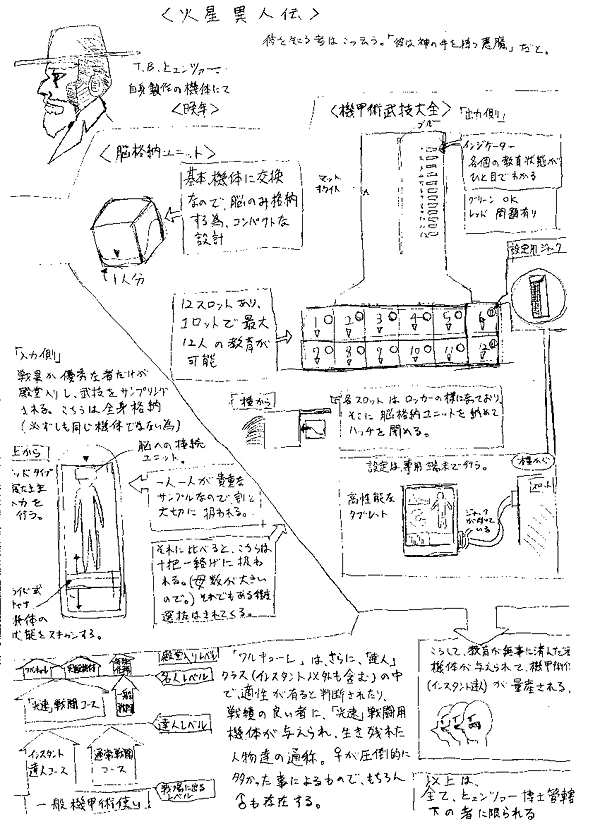 〈火星異人伝〉
彼を知る者はこう云う。「彼は神の手を持つ悪魔」だと。
T.B.ヒュンツァー
自身製作の機体にて
〈晩年〉
〈機甲術武技大全〉
「出力側」
ブルー
マット
ホワイト
インジケーター
各個の教育状態が
ひと目でわかる
グリーン OK
レッド 問題有り
設定用ジャック
〈脳格納ユニット〉
基本、機体に交換
なので、脳のみ格納
する為、コンパクトな
設計
1人分
12スロットあり、
1ロットで最大
12人の教育が
可能
1 2 3 4 5 6
7 8 9 10 11 12
「入力側」
戦果が優秀な者だけが
殿堂入りし、武技をサンプリング
される。こちらは全身格納
(必ずしも同じ機体でない為)
「横から」
各スロットはロッカーの様になっており
そこに脳格納ユニットを納めて
ハッチを閉める。
設定は専用端末で行う。
横から
高性能な
タブレット
ジャックが
付いて
いる
スロット
上から
脳への接続
ユニット。
ッドタイプ
力を
行う。
一人一人が貴重な
サンプルなので割と
大切に扱われる。
それに比べると、こちらは
十把一絡げに扱わ
れる。(母数が大きい
ので。)それでもある程度
選抜はされてくる。
ライド式
機体の
状態をスキャンする。
ワルキューレ
殿堂入りレベル
名人レベル
「光速」戦闘コース
達人レベル
インスタント
達人コース
通常戦闘
コース
戦場に出る
レベル
一般機甲術使い
「ワルキューレ」は、さらに、「達人」
クラス(インスタント以外も含む)の中
で、適性が有ると判断されたり、
戦績の良い者に、「光速」戦闘用
機体が与えられ、生き残れた
人物達の通称。♀が圧倒的に
多かった事によるもので、もちろん
♂も存在する。
こうして、教育が無事に済んだ者
機体が与えられて、機甲術
(インスタント達人)が量産される。
以上は、
全て、ヒュンツァー博士管轄
下の者に限られる